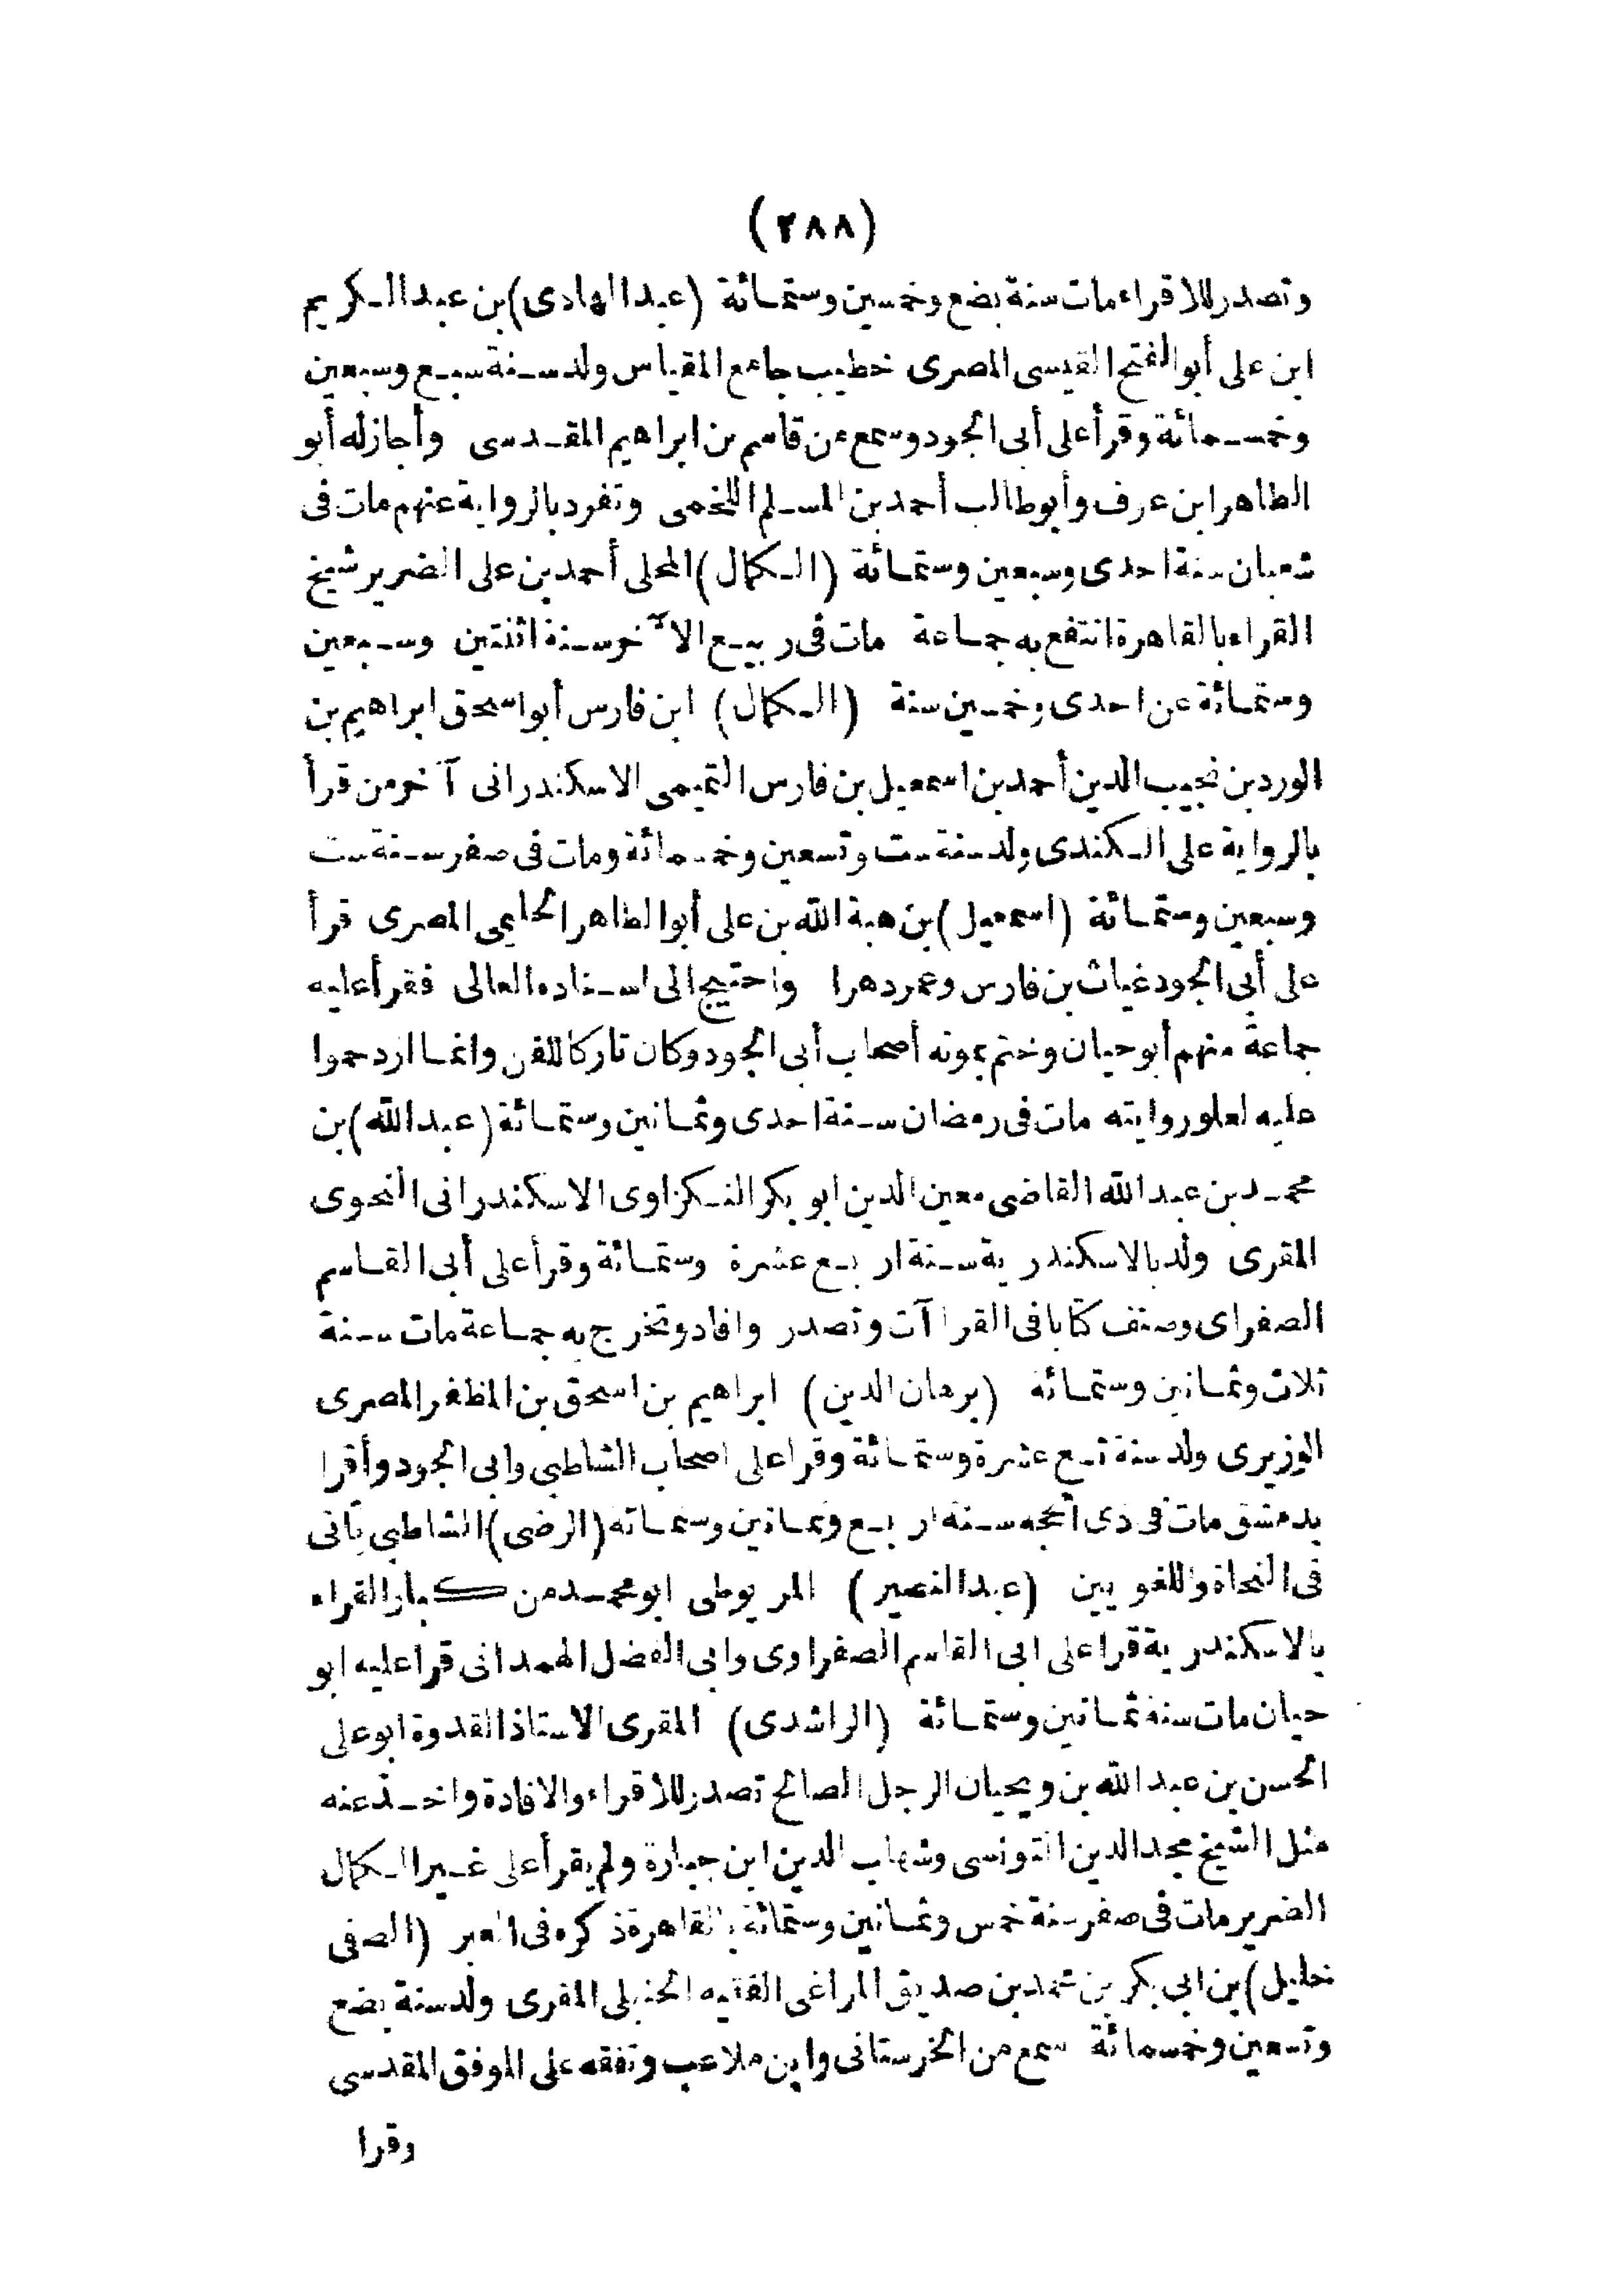 (٢٨٨)
وتصدر للاقراء مات سنة بضع وخمسين وستمائة (عبد الهادى) بن عبد الكريم
ابن على أبو الفتح القيسى المصرى خطيب جامع المقياس ولد سنة سبع وسبعين
وخمسمائة وقرأ على أبى الجود وسمع من قاسم بن ابراهيم المقدسى وأجاز له أبو
الطاهر ابن عرف وأبو طالب أحمد بن المسلم اللخمى وتفرد بالرواية عنهم مات فى
شعبان سنة احدى وسبعين وستمائة (الكمال) المحلى أحمد بن على الضرير شيخ
القراء بالقاهرة انتفع به جماعة مات فى ربيع الآخر سنة اثنتين وسبعين
وستمائة عن احدى وخمسين سنة (الكمال) ابن فارس أبو اسحق ابراهيم بن
الورد بن نجيب الدين أحمد بن اسمعيل بن فارس التميمى الاسكندرانى آخر من قرأ
بالرواية على الكندى ولد سنة ست وتسعين وخمسمائة ومات فى صفر سنة ست
وسبعين وستمائة (اسمعيل) بن هبة الله بن على أبو الطاهر الحليمى المصرى قرأ
على أبى الجود غياث بن فارس وعمر دهرا واحتيج الى اسناده العالى فقرأ عليه
جماعة منهم أبو حيان وختم بموته أصحاب أبى الجود وكان تاركا للفن وانما ازدحموا
عليه لعلو روايته مات فى رمضان سنة احدى وثمانين وستمائة (عبد الله) بن
محمد بن عبد الله القاضى معين الدين ابو بكر النكزاوى الاسكندرانى النحوى
المقرى ولد بالاسكندرية سنة اربع عشرة وستمائة وقرأ على أبى القاسم
الصفراى وصنف كتابا فى القراآت وتصدر وافاد وتخرج به جماعة مات سنة
ثلاث وثمانين وستمائة (برهان الدين) ابراهيم بن اسحق بن المظفر المصرى
الوزيرى ولد سنة تسع عشرة وستمائة وقرا على اصحاب الشاطبى وابى الجود وأقرا
بدمشق مات فى ذى الحجه سنة اربع وثمانين وستمائه (الرضى) الشاطبى يأتى
فى النحاة واللغويين (عبد النصير) المريوطى ابو محمد من كبار القراء
بالاسكندرية قرا على ابى القاسم الصفراوى وابى الفضل الهمدانى قرا عليه ابو
حيان مات سنة ثمانين وستمائة (الراشدى) المقرى الاستاذ القدوة ابو على
الحسن بن عبد الله بن ويحيان الرجل الصالح تصدر للاقراء والافادة واخذ عنه
مثل الشيخ مجد الدين التونسى وشهاب الدين ابن جبارة ولم يقرأ على غير الكمال
الضرير مات فى صفر سنة خمس وثمانين وستمائة بالقاهرة ذكره فى العبر (الصفى
خليل) بن ابى بكر بن محمد بن صديق المراغى الفقيه الحنبلى المقرى ولد سنة بضع
وتسعين وخمسمائة سمع من الخرستانى وابن ملاعب وتفقه على الموفق المقدسى
وقرا